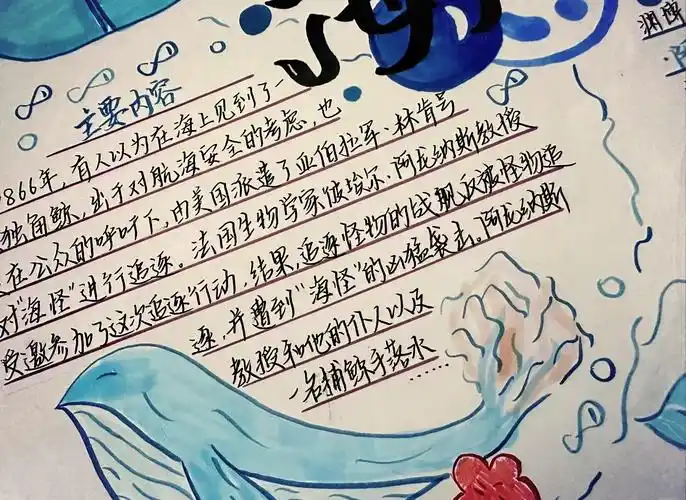 海
主要内容
1866年，有人以为在海上见到了一
独角鲸，出于对航海安全的考虑，也
在公众的呼吁下，由美国派遣了亚伯拉罕·林肯号
对“海怪”进行追逐。法国生物学家彼埃尔·阿龙纳斯教授
受邀参加了这次追逐行动，结果，追逐怪物的战舰反被怪物追
逐，并遭到“海怪”的凶猛袭击。阿龙纳斯
教授和他的仆人以及
一名捕鲸手落水……